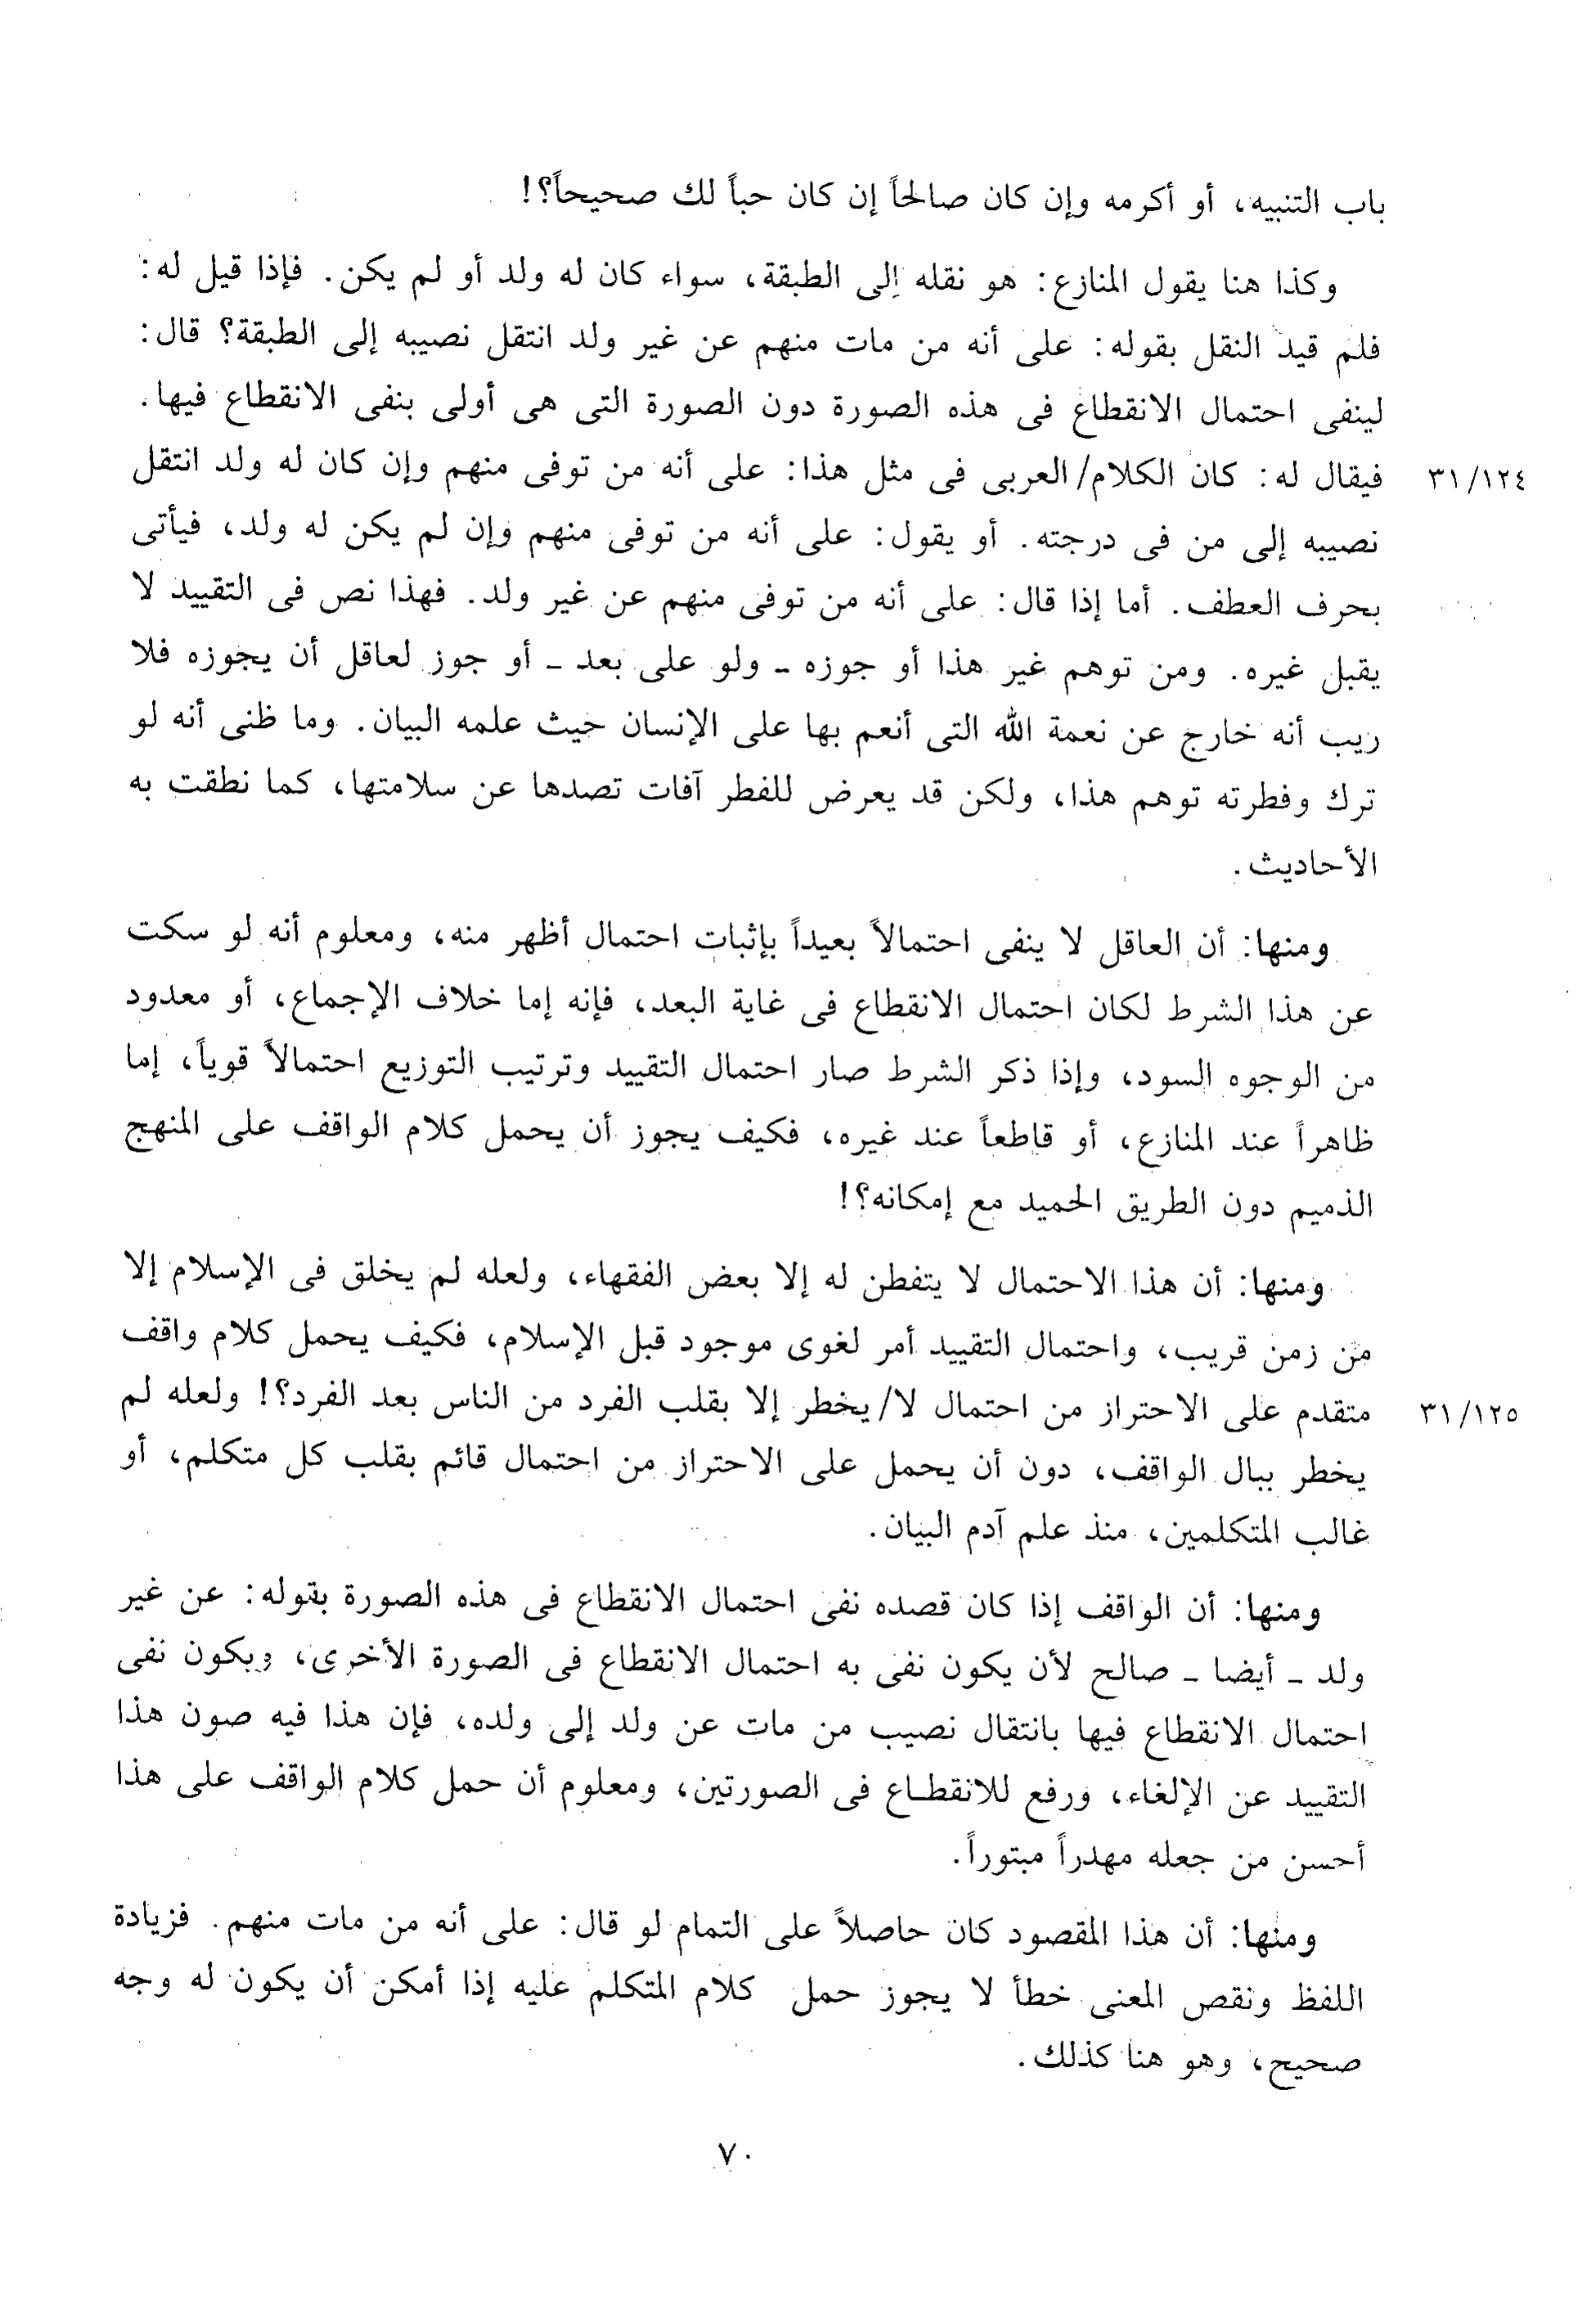 باب التنبيه، أو أكرمه وإن كان صالحاً إن كان حباً لك صحيحاً؟!
وكذا هنا يقول المنازع: هو نقله إلى الطبقة، سواء كان له ولد أو لم يكن. فإذا قيل له:
فلم قيد النقل بقوله: على أنه من مات منهم عن غير ولد انتقل نصيبه إلى الطبقة؟ قال:
لينفى احتمال الانقطاع فى هذه الصورة دون الصورة التى هى أولى بنفى الانقطاع فيها.
٣١/١٢٤ فيقال له: كان الكلام/ العربى فى مثل هذا: على أنه من توفى منهم وإن كان له ولد انتقل
نصيبه إلى من فى درجته. أو يقول: على أنه من توفى منهم وإن لم يكن له ولد، فيأتى
بحرف العطف. أما إذا قال: على أنه من توفى منهم عن غير ولد. فهذا نص فى التقييد لا
يقبل غيره. ومن توهم غير هذا أو جوزه ـ ولو على بعد ـ أو جوز لعاقل أن يجوزه فلا
ريب أنه خارج عن نعمة الله التى أنعم بها على الإنسان حيث علمه البيان. وما ظنى أنه لو
ترك وفطرته توهم هذا، ولكن قد يعرض للفطر آفات تصدها عن سلامتها، كما نطقت به
الأحاديث.
ومنها: أن العاقل لا ينفى احتمالاً بعيداً بإثبات احتمال أظهر منه، ومعلوم أنه لو سكت
عن هذا الشرط لكان احتمال الانقطاع فى غاية البعد، فإنه إما خلاف الإجماع، أو معدود
من الوجوه السود، وإذا ذكر الشرط صار احتمال التقييد وترتيب التوزيع احتمالاً قوياً، إما
ظاهراً عند المنازع، أو قاطعاً عند غيره، فكيف يجوز أن يحمل كلام الواقف على المنهج
الذميم دون الطريق الحميد مع إمكانه؟!
ومنها: أن هذا الاحتمال لا يتفطن له إلا بعض الفقهاء، ولعله لم يخلق فى الإسلام إلا
من زمن قريب، واحتمال التقييد أمر لغوى موجود قبل الإسلام، فكيف يحمل كلام واقف
٣١/١٢٥ متقدم على الاحتراز من احتمال لا/ يخطر إلا بقلب الفرد من الناس بعد الفرد؟! ولعله لم
يخطر ببال الواقف، دون أن يحمل على الاحتراز من احتمال قائم بقلب كل متكلم، أو
غالب المتكلمين، منذ علم آدم البيان.
ومنها: أن الواقف إذا كان قصده نفى احتمال الانقطاع فى هذه الصورة بقوله: عن غير
ولد ـ أيضا ـ صالح لأن يكون نفى به احتمال الانقطاع فى الصورة الأخرى، ويكون نفى
احتمال الانقطاع فيها بانتقال نصيب من مات عن ولد إلى ولده، فإن هذا فيه صون هذا
التقييد عن الإلغاء، ورفع للانقطاع فى الصورتين، ومعلوم أن حمل كلام الواقف على هذا
أحسن من جعله مهدراً مبتوراً.
ومنها: أن هذا المقصود كان حاصلاً على التمام لو قال: على أنه من مات منهم. فزيادة
اللفظ ونقص المعنى خطأ لا يجوز حمل كلام المتكلم عليه إذا أمكن أن يكون له وجه
صحيح، وهو هنا كذلك.
٧٠